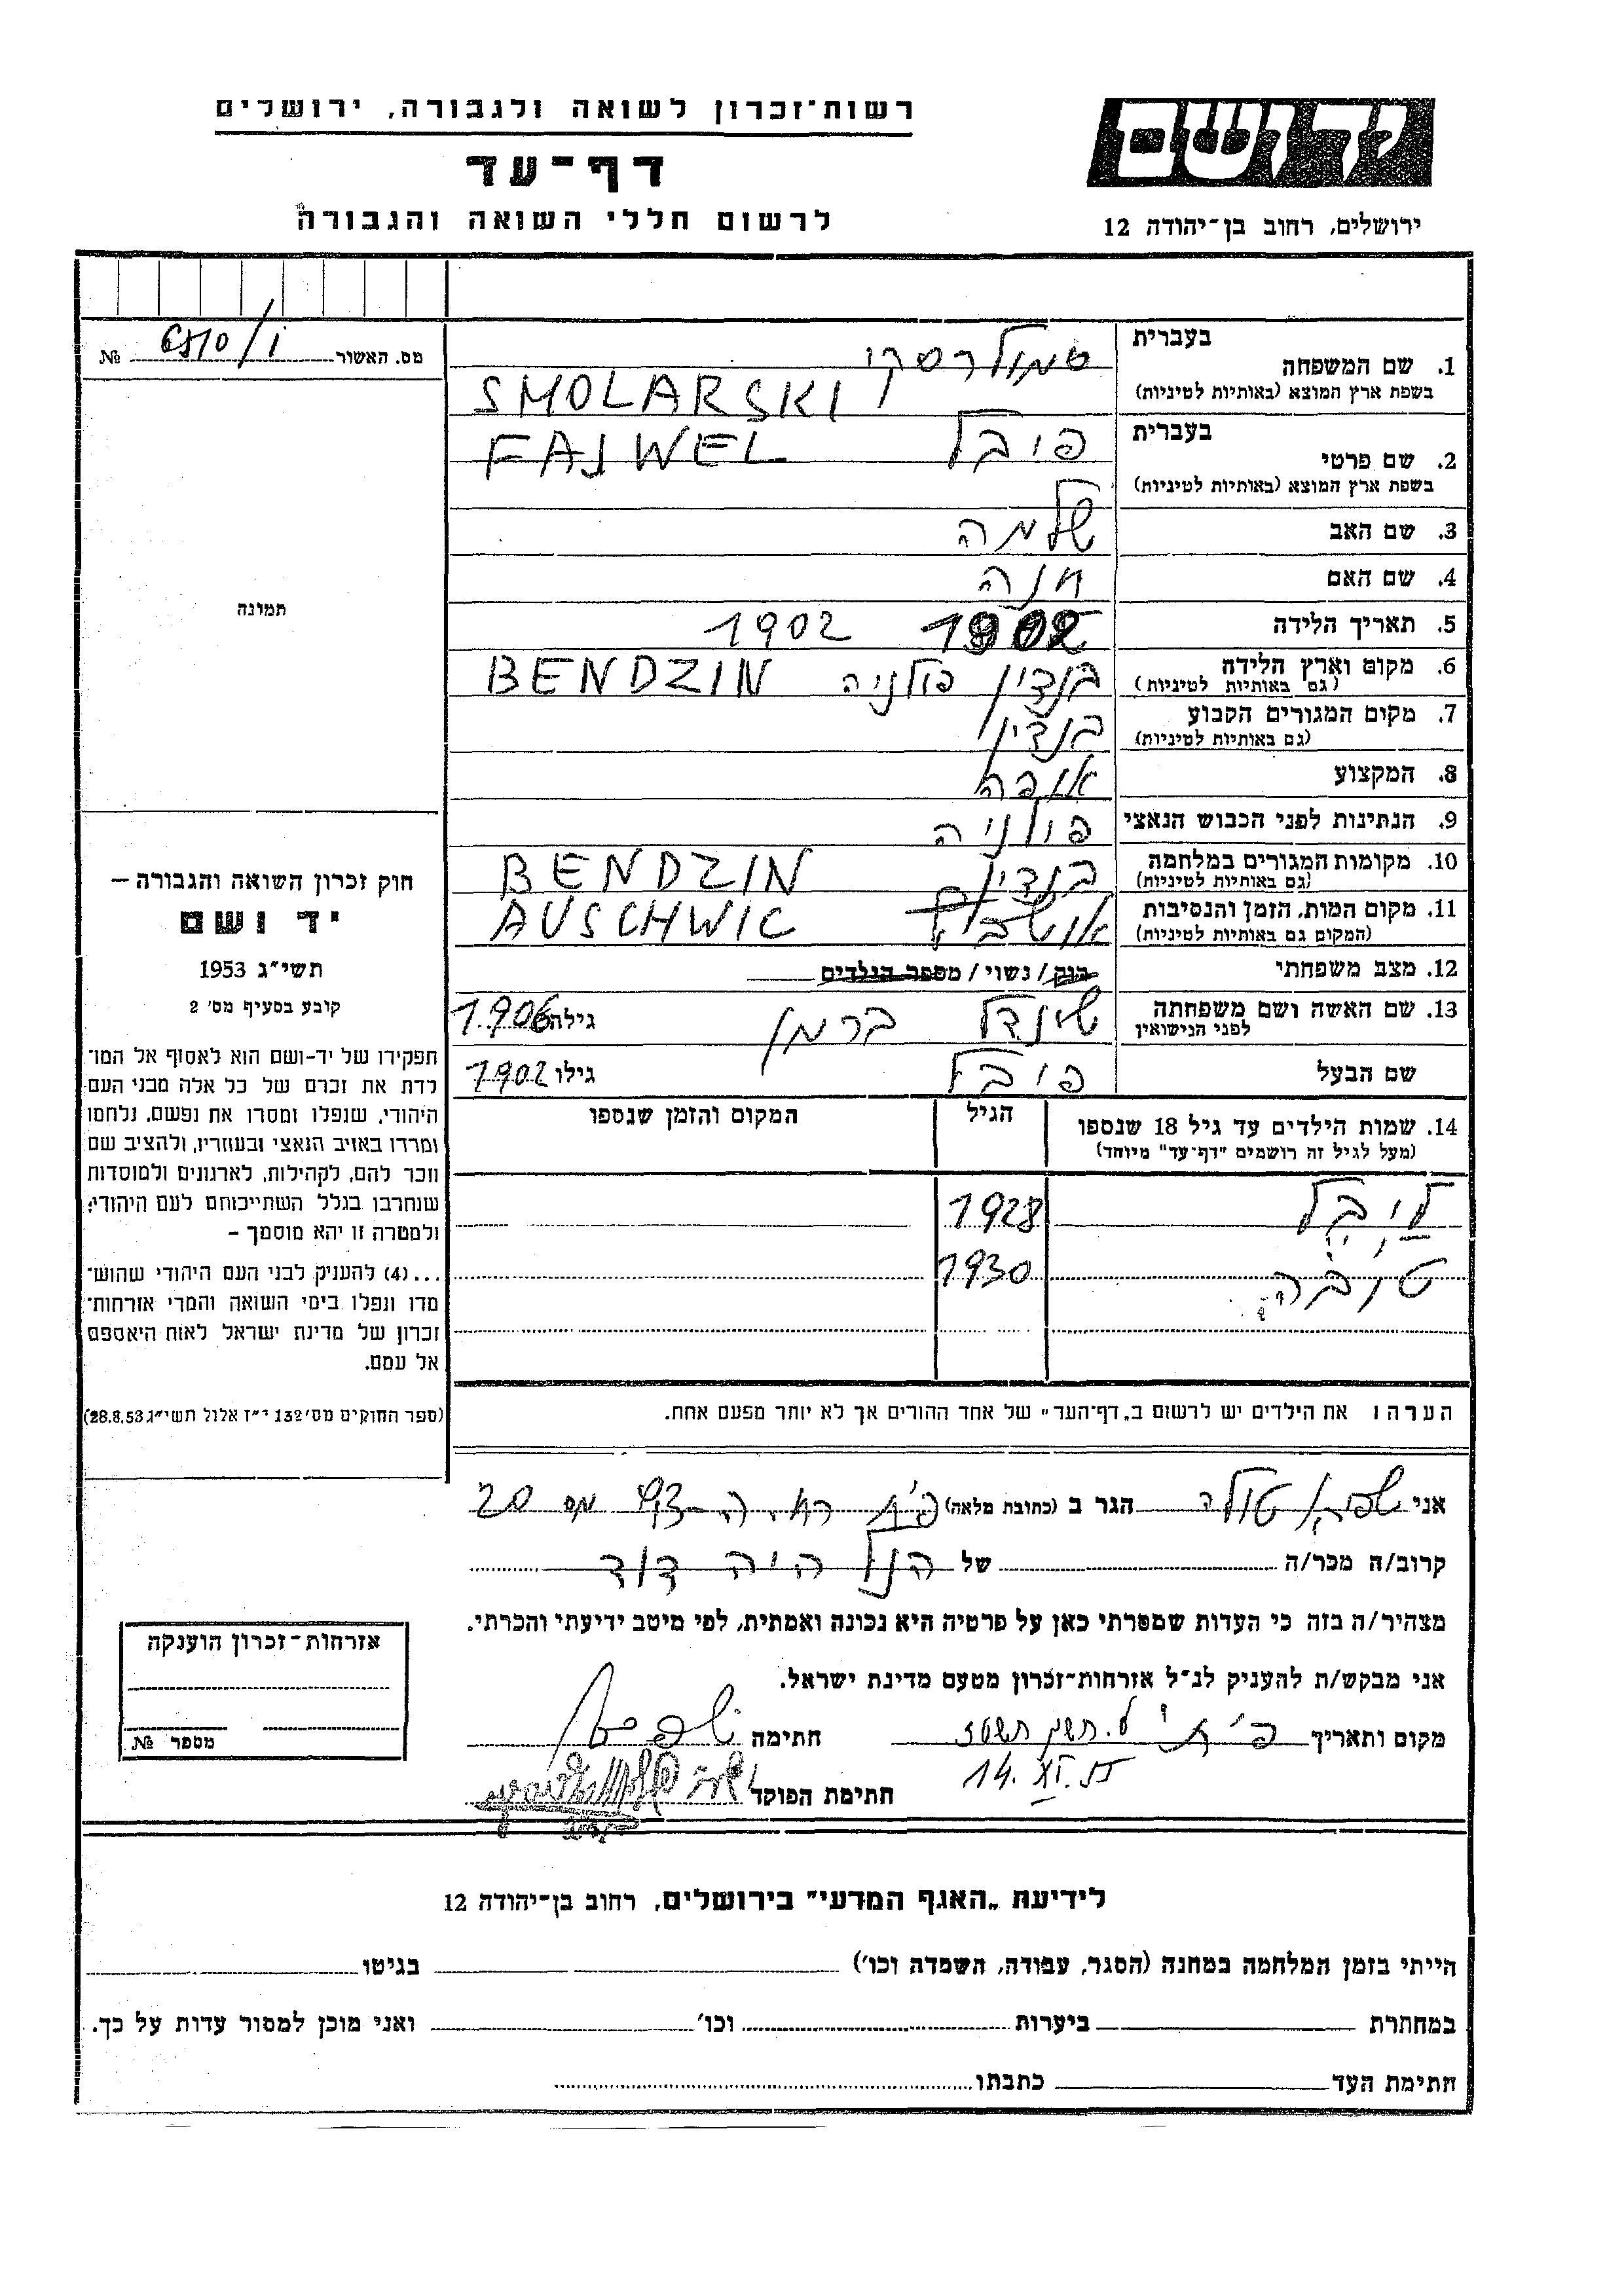 רשות־זכרון לשואה ולגבורה, ירושלים
דף־עד
לרשום חללי השואה והגבורה
יד ושם
ירושלים, רחוב בן־יהודה 12
מס. האשור 6510/1 №
תמונה
חוק זכרון השואה והגבורה –
יד ושם
תשי״ג 1953
קובע בסעיף מס׳ 2
תפקידו של יד-ושם הוא לאסוף אל המו־
לדת את זכרם של כל אלה מבני העם
היהודי, שנפלו ומסרו את נפשם, נלחמו
ומרדו באויב הנאצי ובעוזריו, ולהציב שם
וזכר להם, לקהילות, לארגונים ולמוסדות
שנחרבו בגלל השתייכותם לעם היהודי;
ולמטרה זו יהא מוסמך –
...(4) להעניק לבני העם היהודי שהוש־
מדו ונפלו בימי השואה והמרי אזרחות־
זכרון של מדינת ישראל לאות היאספם
אל עמם.
(ספר החוקים מס׳ 132 י״ז אלול תשי״ג 28.8.53)
1. שם המשפחה
בעברית סמולרסקי
בשפת ארץ המוצא (באותיות לטיניות) SMOLARSKI
2. שם פרטי
בעברית פיבל FAJWEL
בשפת ארץ המוצא (באותיות לטיניות)
3. שם האב שלמה
4. שם האם חנה
5. תאריך הלידה 1902 1902
6. מקום וארץ הלידה בנדין פולניה BENDZIN
(גם באותיות לטיניות)
7. מקום המגורים הקבוע בנדין
(גם באותיות לטיניות)
8. המקצוע אופה
9. הנתינות לפני הכבוש הנאצי פולניה
10. מקומות המגורים במלחמה בנדין BENDZIN
(גם באותיות לטיניות)
11. מקום המות, הזמן והנסיבות AUSCHWIC
(המקום גם באותיות לטיניות)
12. מצב משפחתי רוק / נשוי / מספר הילדים
13. שם האשה ושם משפחתה שינדל ברמן גילה 1906
לפני הנישואין
שם הבעל פיבל גילו 1902
14. שמות הילדים עד גיל 18 שנספו הגיל המקום והזמן שנספו
(מעל לגיל זה רושמים "דף־עד" מיוחד)
ליבל 1928
טובה 1930
הערה: את הילדים יש לרשום ב„דף־העד" של אחד ההורים אך לא יותר מפעם אחת.
אני טולה הגר ב (כתובת מלאה) 20
קרוב/ה מכר/ה של הנ״ל היה דוד
מצהיר/ה בזה כי העדות שמסרתי כאן על פרטיה היא נכונה ואמתית, לפי מיטב ידיעתי והכרתי.
אני מבקש/ת להעניק לנ״ל אזרחות־זכרון מטעם מדינת ישראל.
מקום ותאריך חתימה
14. XI. 55
חתימת הפוקד
אזרחות־זכרון הוענקה
מספר №
לידיעת „האגף המדעי" בירושלים, רחוב בן־יהודה 12
הייתי בזמן המלחמה במחנה (הסגר, עבודה, השמדה וכו׳) בגיטו
במחתרת ביערות וכו׳ ואני מוכן למסור עדות על כך.
חתימת העד כתבתו